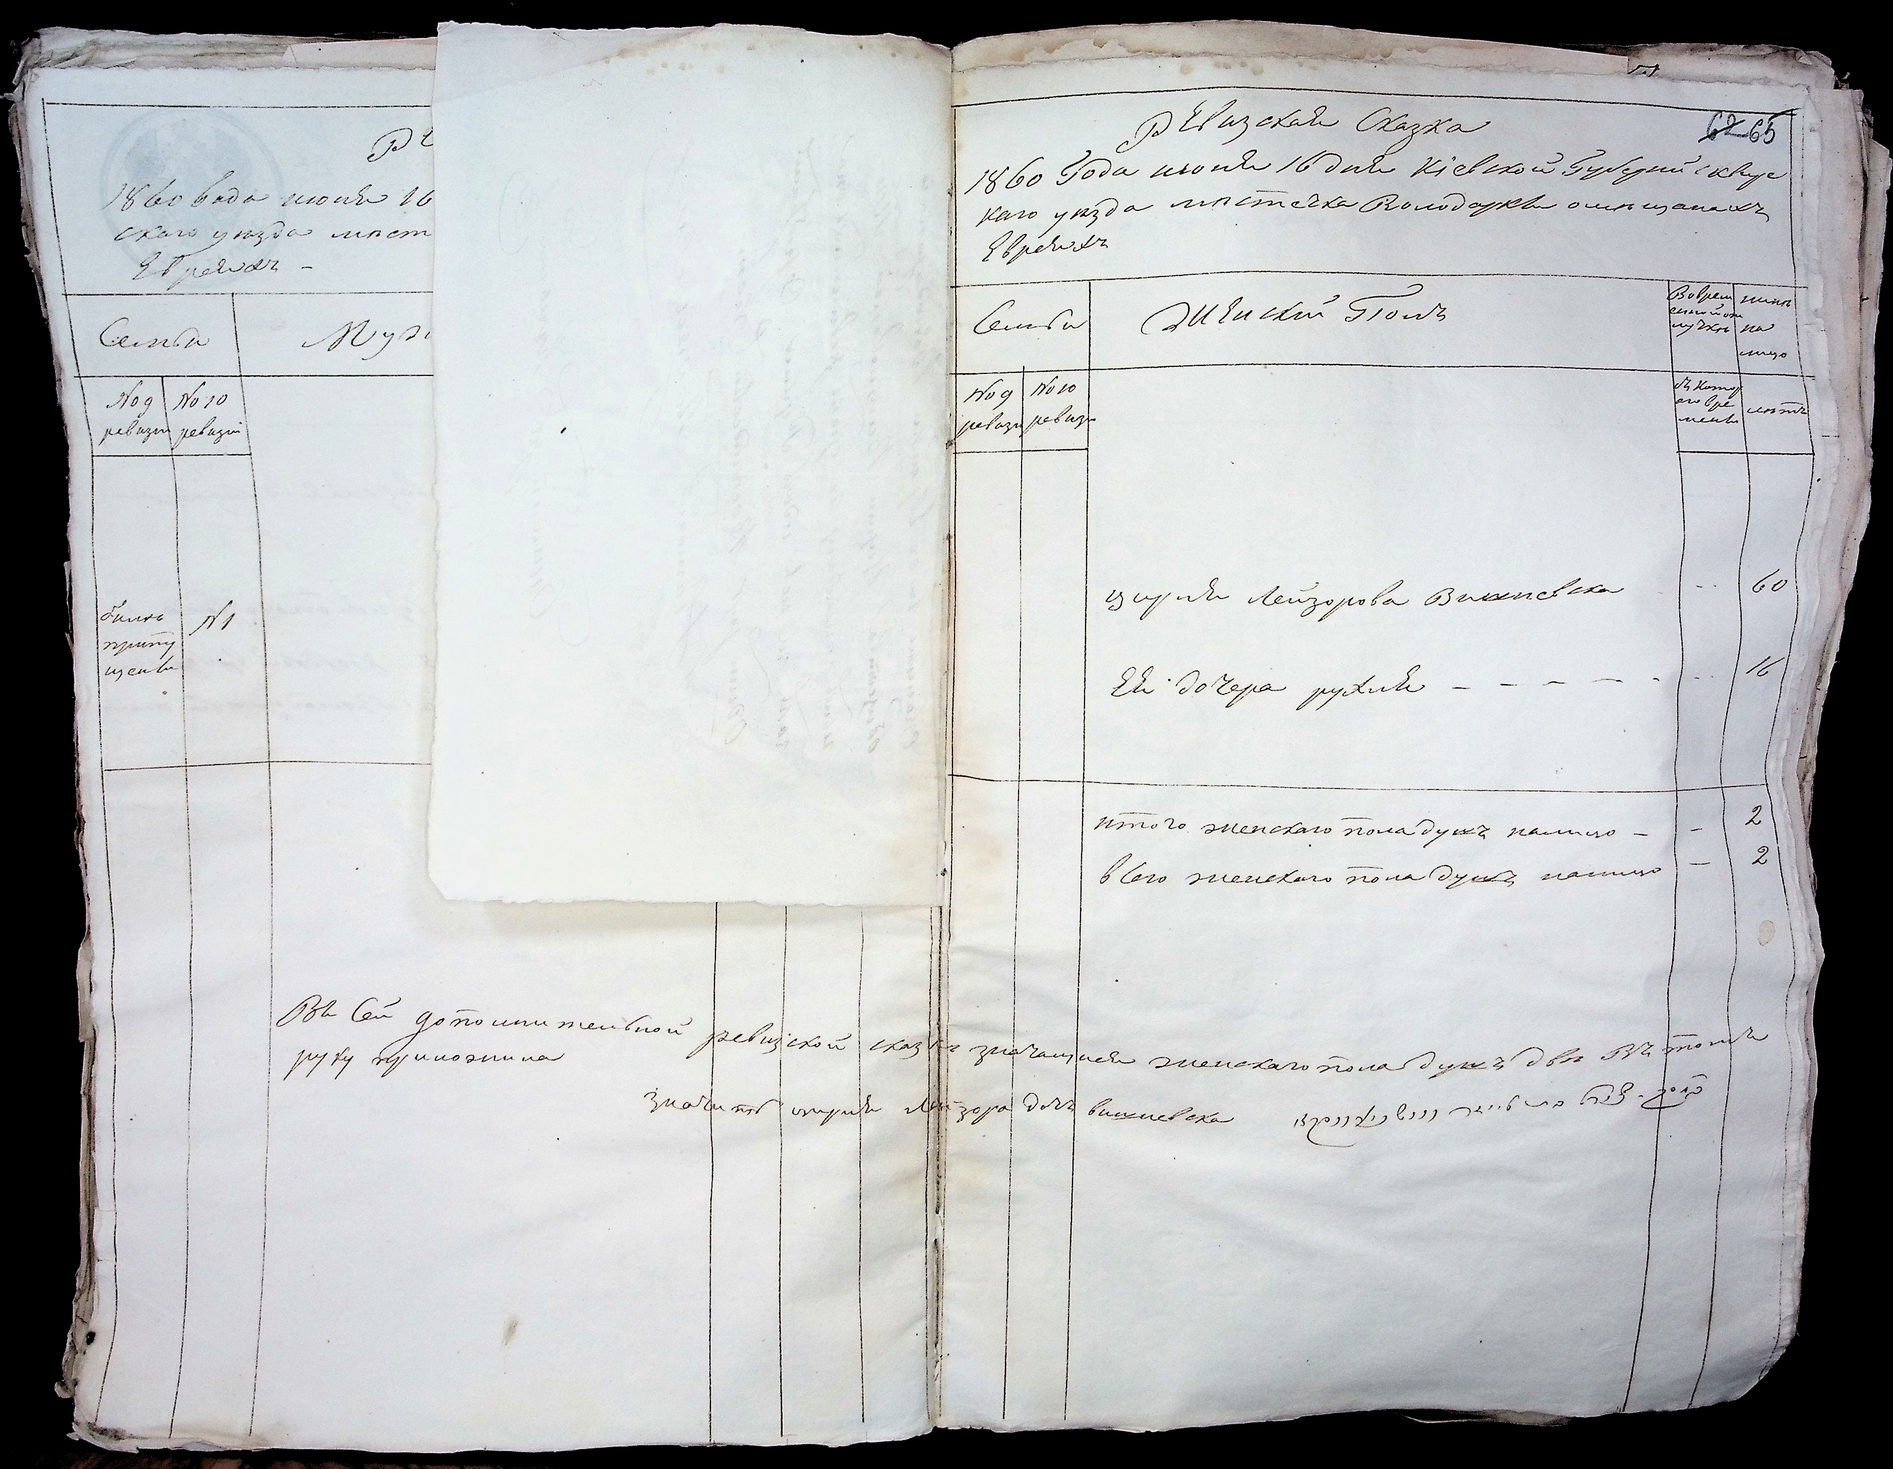 1860 года июня 16
скаго уѣзда мѣст
Евреяхъ –
Семья
Муж
№ 9 ревизіи
№ 10 ревизіи
были
пропу
щены
№ 1
Ревизская Сказка
65
1860 Года июня 16 дня Кіевской Губерніи Сквир
каго уѣзда мѣстечка Володарки о мѣщанахъ
Евреяхъ
Семья
Женскій Полъ
Во врем
енной от
лучкѣ
нынѣ
на
лицо
№ 9 ревизіи
№ 10 ревизіи
съ котор
аго вре
мени
лѣтъ
Лейзорова Вишневска 60
Ея дочера рухля – – – – – 16
итого женскаго пола душъ налицо – – 2
всего женскаго пола душъ налицо – 2
Въ Сей дополнительной ревизской сказкѣ значащихся женскаго пола душъ двѣ Въ томъ
руку приложила